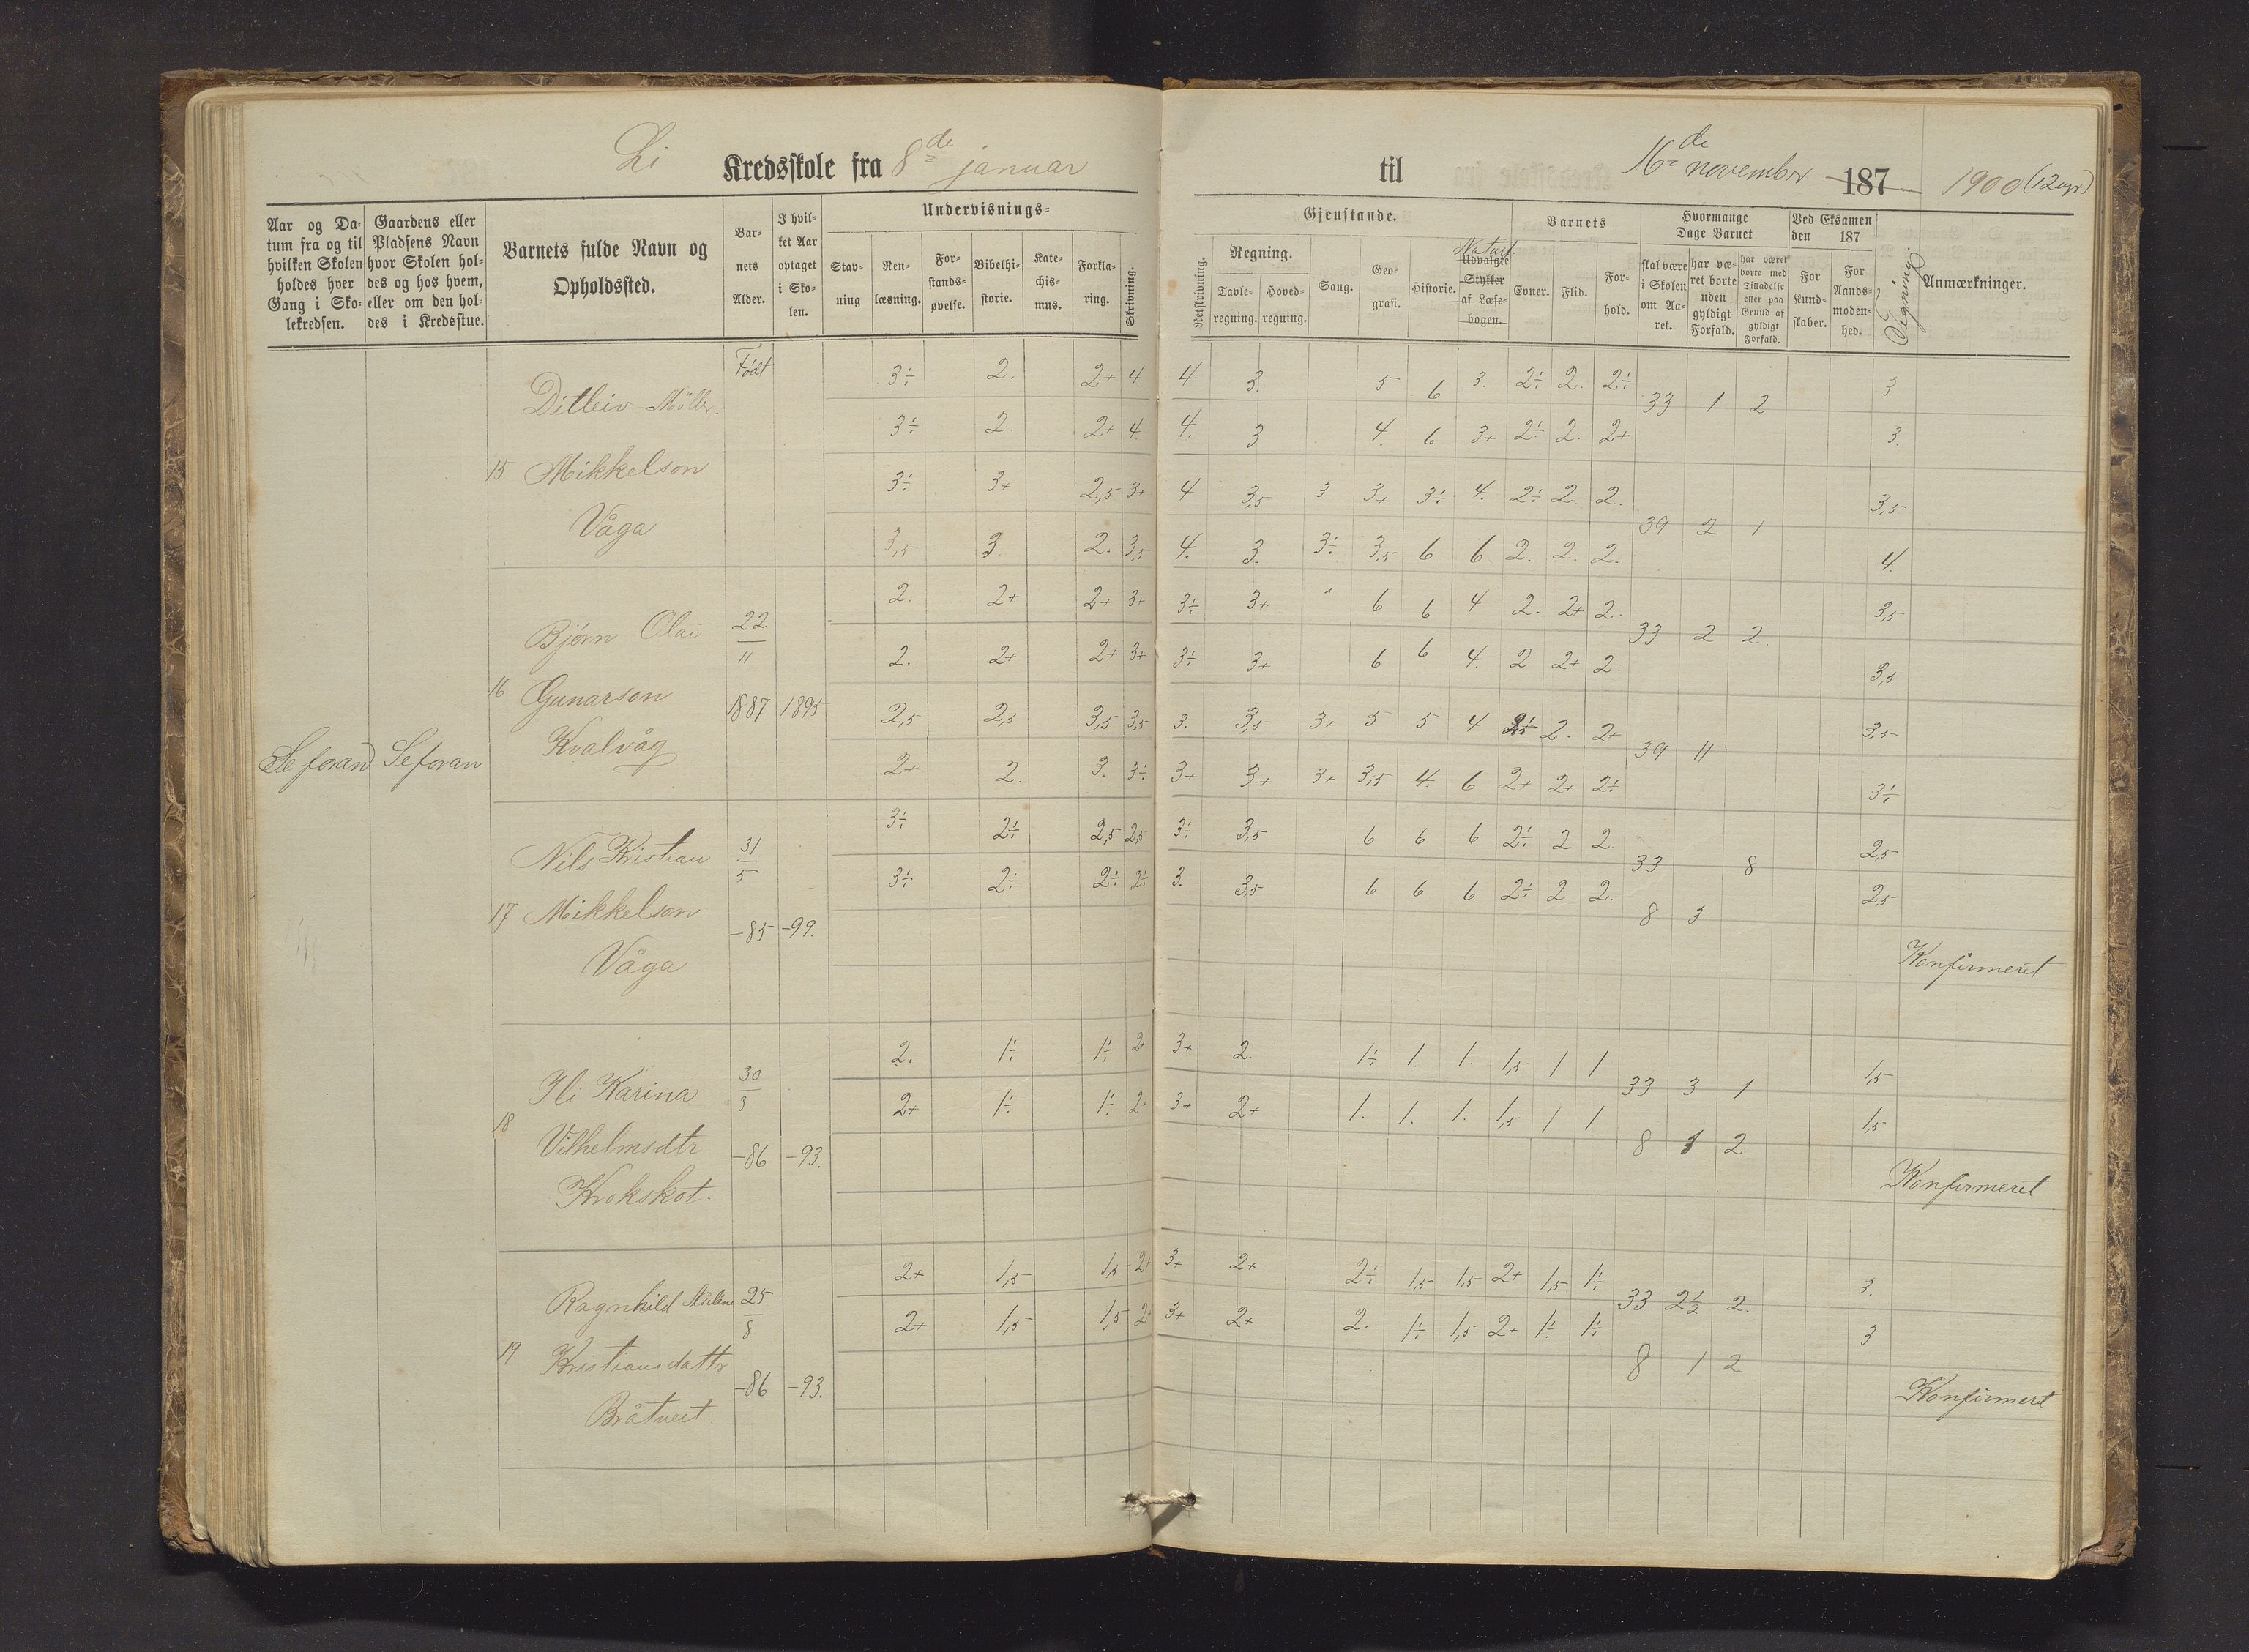 Li Kredsskole fra 8de januar til 16de november 187 1900 (12 uger)
Aar og Da-
tum fra og til
hvilken Skolen
holdes hver
Gang i Sko-
lekredsen.
Gaardens eller
Pladsens Navn
hvor Skolen hol-
des og hos hvem,
eller om den hol-
des i Kredsstue.
Barnets fulde Navn og
Opholdssted.
Bar-
nets
Alder.
I hvil-
ket Aar
optaget
i Sko-
len.
Undervisnings-
Stav-
ning
Ren-
læsning.
For-
stands-
øvelse.
Bibelhi-
storie.
Kate-
chis-
mus.
Forkla-
ring.
Skrivning.
Gjenstande.
Retskrivning.
Regning.
Tavle-
regning.
Hoved-
regning.
Sang.
Geo-
grafi.
Historie.
Naturf.
Udvalgte
Stykker
af Læse-
bogen.
Barnets
Evner.
Flid.
For-
hold.
Hvormange
Dage Barnet
skal være
i Skolen
om Aa-
ret.
har væ-
ret borte
uden
gyldigt
Forfald.
har været
borte med
Tilladelse
eller paa
Grund af
gyldigt
Forfald.
Ved Eksamen
den 187
For
Kund-
skaber.
For
Aands-
moden-
hed.
Tegning
Anmærkninger.
Se foran Se foran
Født
3÷ 2. 2+ 4 4 3. 5 6 3. 2÷ 2. 2÷ 3
Ditleiv Möller.
33 1 2
3÷ 2. 2+ 4 4. 3 4. 6 3+ 2÷ 2. 2+ 3.
15 Mikkelson
3÷ 3+ 2,5 3+ 4 3,5 3 3+ 3÷ 4. 2÷ 2. 2. 3,5
Våga
39 2 1
3,5 3. 2. 3,5 4. 3. 3÷ 3,5 6 6 2. 2. 2. 4.
2. 2+ 2+ 3+ 3÷ 3+ 6 6 4 2. 2+ 2. 3,5
Bjørn Olai 22/11
33 2 2.
2. 2+ 2+ 3+ 3÷ 3+ 6 6 4. 2 2+ 2. 3,5
16 Gunarson 1887 1895
2,5 2,5 3,5 3,5 3. 3,5 3+ 5 5 4 2. 2+ 3,5
Kvalvåg
39 11
2+ 2. 3. 3÷ 3+ 3+ 3+ 3,5 4. 6 2+ 2+ 2÷ 3÷
3÷ 2÷ 2,5 2,5 3÷ 3,5 6 6 6 2÷ 2 2. 2,5
Nils Kristian 31/5
33 8
3÷ 2÷ 2÷ 2÷ 3. 3,5 6 6 6 2÷ 2 2. 2,5
8 3
17 Mikkelson -85 -99.
Våga
Konfirmeret
2. 1÷ 1÷ 2+ 3+ 2. 1÷ 1. 1. 1,5 1 1 1,5
Ili Karina 30/3
33 3 1
2+ 1÷ 1÷ 2+ 3+ 2+ 1. 1. 1. 1,5 1 1 1,5
8 2
18
Vilhelmsdtr -86 -93.
Krokskot.
Konfirmeret
2+ 1,5 1,5 2+ 3+ 2+ 2÷ 1,5 1,5 2+ 1,5 1÷ 3.
Ragnhild 25/8
33 2½ 2.
2+ 1,5 1,5 2+ 3+ 2+ 2. 1÷ 1,5 2+ 1÷ 1÷ 3
8 1 2
19 Kristiansdattr -86 -93.
Bråtveit
Konfirmeret